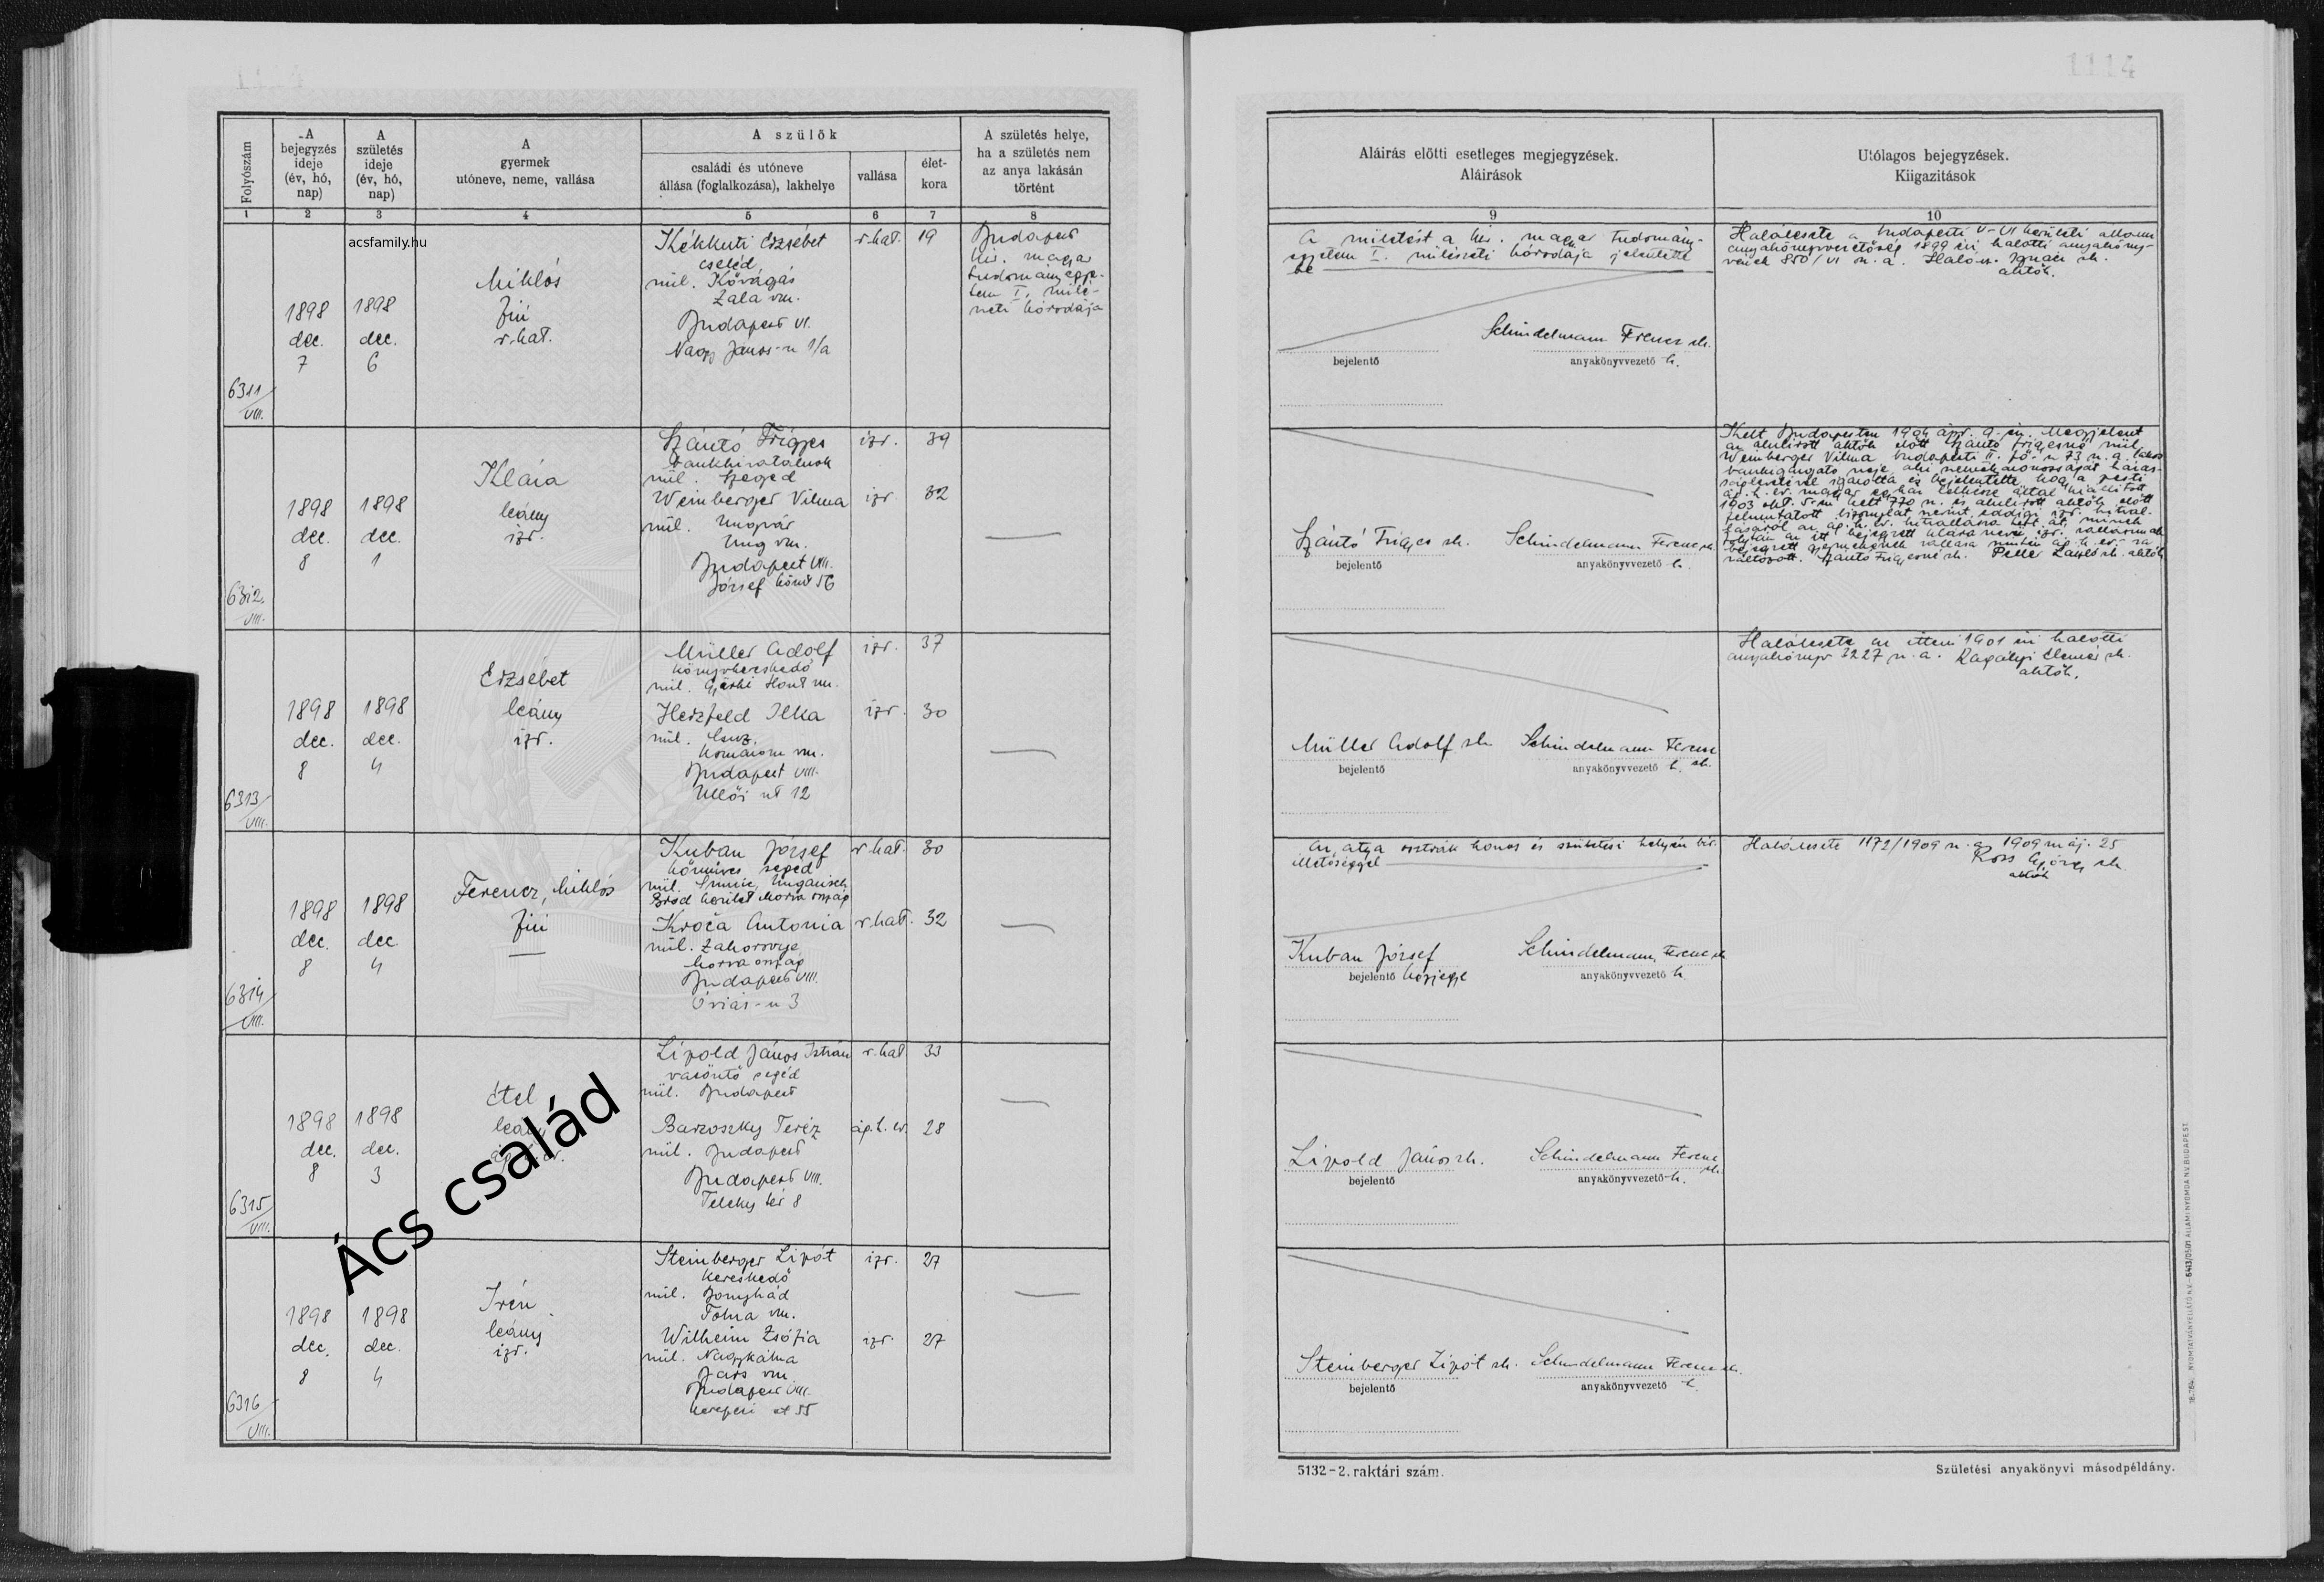 1114
Folyószám
A bejegyzés ideje (év, hó, nap)
A születés ideje (év, hó, nap)
A gyermek utóneve, neme, vallása
A szülők
családi és utóneve állása (foglalkozása), lakhelye
vallása
élet-kora
A születés helye, ha a születés nem az anya lakásán történt
Aláírás előtti esetleges megjegyzések. Aláírások
Utólagos bejegyzések. Kiigazitások
1 2 3 4 5 6 7 8 9 10
acsfamily.hu
6311/VIII.
1898 dec. 7
1898 dec. 6
Miklós
fiú
r.hat.
Kékkuti Erzsébet r.hat. 19
cseléd
szül. Kővágás
Zala vm.
Budapest VI.
Nagy János-u 1/a
Budapest
kir. magyar
tudományegye-
tem I. szülé-
szeti kórodája
A születést a kir. magyar tudomány-
egyetem I. szülészeti kórodája jelentette
be
Schindelmann Ferencz sk.
bejelentő
anyakönyvvezető h.
Halálesete a budapesti V-VI kerületi állami
anyakönyvvezetőség 1899 évi halotti anyaköny-
vének 850/VI sz. a. Ignácz sk.
aktök.
6312/VIII.
1898 dec. 8
1898 dec. 1
Klára
leány
izr.
Szántó Frigyes izr. 39
bankhivatalnok
szül. Szeged
Weinberger Vilma izr 32
szül. Ungvár
Ung vm.
Budapest VIII.
József körút 56
Szántó Frigyes sk. Schindelmann Ferencz sk.
bejelentő
anyakönyvvezető h.
Kelt Budapesten 1904 ápr. 9-én. Megjelent
az alulirott aktök előtt Szántó Frigyesné szül.
Weinberger Vilma budapesti II. fő-u 73 sz. a. lakos
bankigazgató neje, aki személyazonosságát házas-
ságlevelével igazolta és bejelentette, hogy a pesti
ág. h. ev. magyar egyház lelkésze által kiállitott
1903 okt. 5-én kelt 770 sz. és alulirott aktök előtt
felmutatott bizonylat szerint eddigi izr. hitval-
lásáról az ág. h. ev. hitvallásra tért át, minek
folytán az itt bejegyzett Klára nevü izr. vallásunak
bejegyzett gyermekének vallása szintén ág. h. ev.-ra
változott. Szántó Frigyesné sk. Peller László sk. aktök
6313/VIII.
1898 dec. 8
1898 dec. 4
Erzsébet
leány
izr.
Müller Adolf izr. 37
könyvkereskedő
szül. Hont vm.
Herzfeld Ilka izr. 30
szül. Csuz.
Komárom vm.
Budapest VIII.
Üllői ut 12
Müller Adolf sk. Schindelmann Ferencz
bejelentő
anyakönyvvezető h. sk.
Halálesete az itteni 1901 évi halotti
anyakönyv 3227 sz. a. Ragályi Elemér sk.
aktök.
6314/VIII.
1898 dec. 8
1898 dec. 4
Ferencz, Miklós
fiú
—
Kuban József r.hat. 30
kőmüves segéd
szül. Ungarisch
Brod kerület Morva ország
Kroča Antonia r.hat. 32
szül. Zahorovje
Morva ország
Budapest VIII.
Óriás-u 3
Az atya osztrák honos és születési helyén bir
illetőséggel
Kuban József Schindelmann Ferencz sk
bejelentő kézjegye
anyakönyvvezető h.
Halálesete 1172/1909 sz. a. 1909 máj. 25
Koss György sk
aktök
6315/VIII.
1898 dec. 8
1898 dec. 3
Etel
leány
Lipold János István r.hat. 33
vasöntő segéd
szül. Budapest
Barzoszky Teréz ág.h.ev. 28
szül. Budapest
Budapest VIII.
Teleky tér 8
Lipold János sk. Schindelmann Ferencz
bejelentő
anyakönyvvezető-h. sk.
Ács család
6316/VIII.
1898 dec. 8
1898 dec. 4
Irén
leány
izr.
Steinberger Lipót izr. 27
kereskedő
szül. Bonyhád
Tolna vm.
Wilheim Zsófia izr. 27
szül. Nagykálna
Bars vm
Budapest VIII.
Kerepesi ut 55
Steinberger Lipót sk. Schindelmann Ferencz sk.
bejelentő
anyakönyvvezető h.
5132-2. raktári szám.
Születési anyakönyvi másodpéldány.